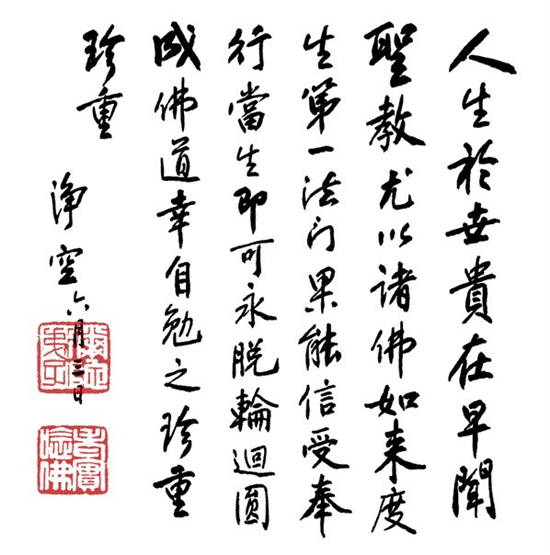 人生於世貴在早聞
聖教尤以諸佛如来度
生第一法门果能信受奉
行當生即可永脱輪迴圓
成佛道幸自勉之珍重
珍重
淨空六月三日
老實
念佛